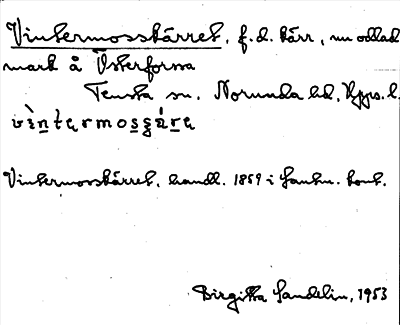 Vintermosskärret, f.d. kärr, nu odlad
mark å Österforma
Tensta sn. Norunda hd, Upps. l.
vìntərmosʂáɽə
Vintermosskärret, handl. 1859 i Lantm. kont.
Birgitta Sandelin, 1953